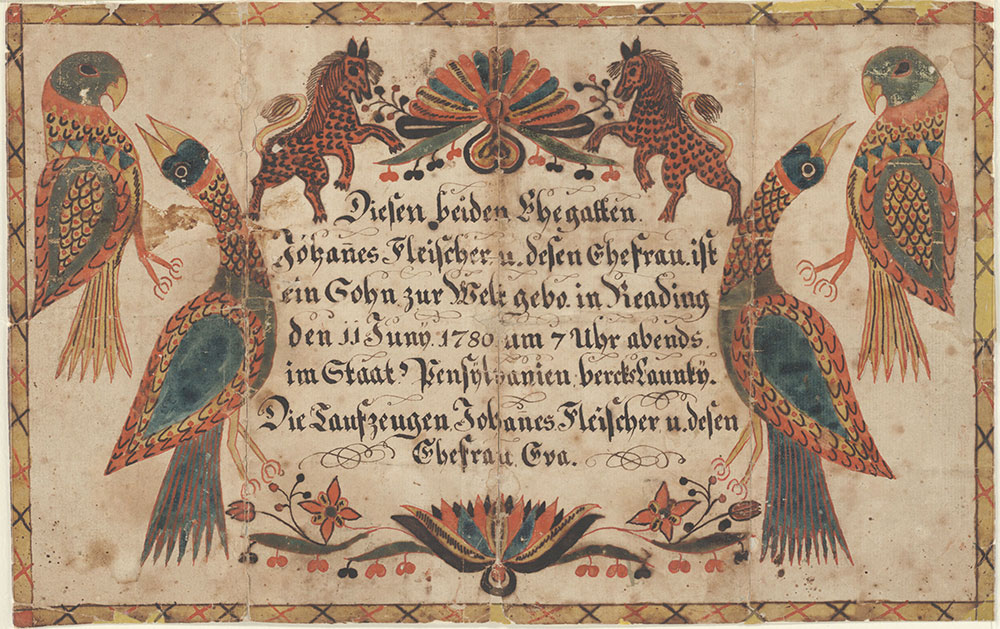 Diesen beiden Ehegatten.
Johan̄es Fleischer u. desen Ehefrau ist
ein Sohn zur Welt gebo. in Reading
den 11 Juny. 1780 um 7 Uhr abends
im Staat Pensylvanien bercks Caunty.
Die Taufzeugen Johan̄es Fleischer u. desen
Ehefrau Eva.